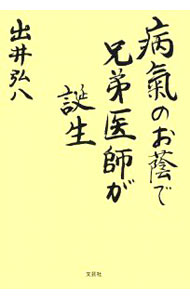 病氣のお蔭で
兄弟医師が
誕生
出井弘八
文芸社